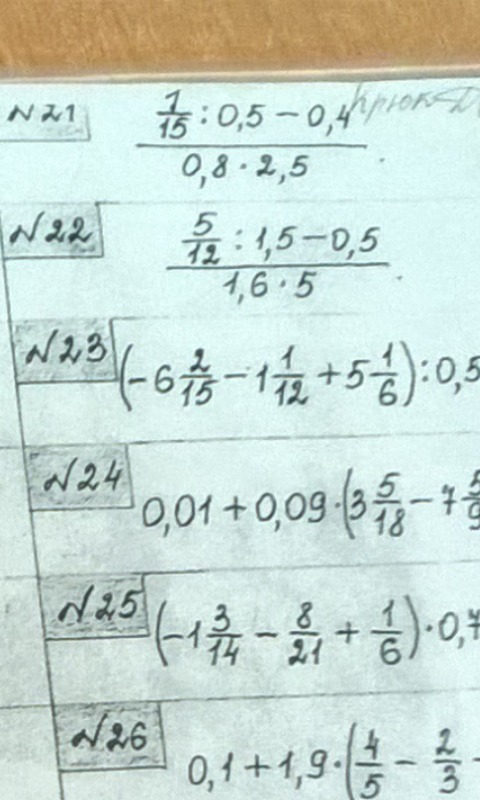 №21 (1/15 : 0,5 − 0,4) / (0,8 · 2,5)
№22 (5/12 : 1,5 − 0,5) / (1,6 · 5)
№23 (−6 2/15 − 1 1/12 + 5 1/6) : 0,5
№24 0,01 + 0,09 · (3 5/18 − 7 5/9
№25 (−1 3/14 − 8/21 + 1/6) · 0,7
№26 0,1 + 1,9 · (4/5 − 2/3 −